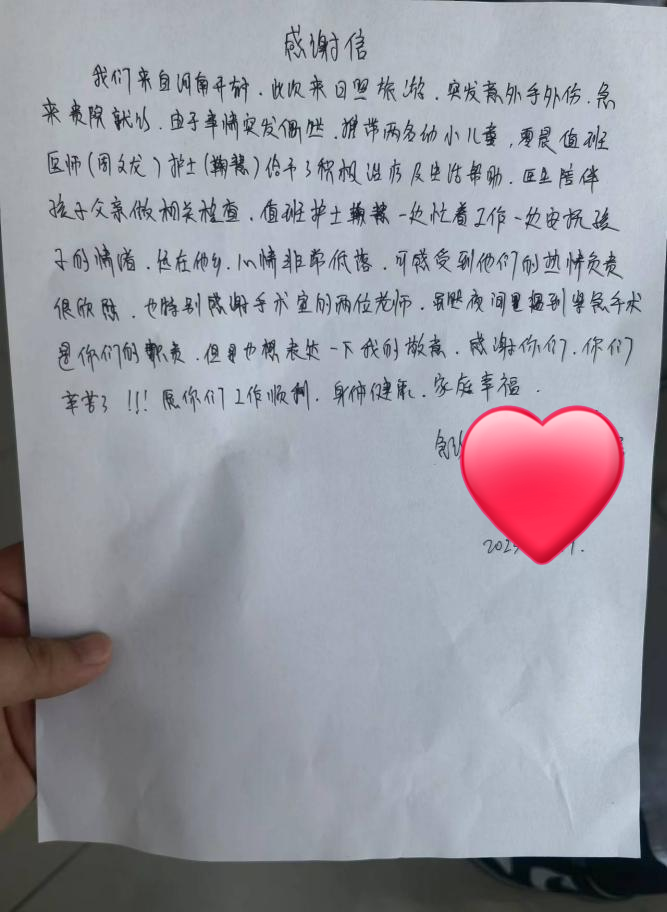 感谢信
我们来自河南开封，此次来日照旅游，突发意外手外伤，急
来贵院就诊，由于事情突发偶然，携带两名幼小儿童，凌晨值班
医师（周文龙）护士（鞠慧）给予了积极治疗及生活帮助，医生陪伴
孩子父亲做相关检查，值班护士鞠慧一处忙着工作一处安抚孩
子的情绪，身在他乡，心情非常低落，可感受到他们的热情负责
很欣慰，也特别感谢手术室的两位老师，虽然夜间遇到紧急手术
是你们的职责，但是也想表达一下我的敬意，感谢你们，你们
辛苦了！！！愿你们工作顺利，身体健康，家庭幸福．
202